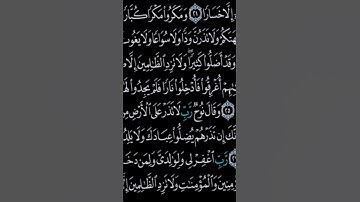 إِلَّا خَسَارًا ٢١ وَمَكَرُوا۟ مَكْرًا كُبَّارًا
هَتَكُمْ وَلَا تَذَرُنَّ وَدًّا وَلَا سُوَاعًا وَلَا يَغُوثَ
وَقَدْ أَضَلُّوا۟ كَثِيرًا ۖ وَلَا تَزِدِ ٱلظَّـٰلِمِينَ إِلَّا
ـٰتِهِمْ أُغْرِقُوا۟ فَأُدْخِلُوا۟ نَارًا فَلَمْ يَجِدُوا۟ لَهُ
٢٥ وَقَالَ نُوحٌ رَّبِّ لَا تَذَرْ عَلَى ٱلْأَرْضِ مِنَ
نَّكَ إِن تَذَرْهُمْ يُضِلُّوا۟ عِبَادَكَ وَلَا يَلِدُ
رَّبِّ ٱغْفِرْ لِى وَلِوَٰلِدَىَّ وَلِمَن دَخَلَ
ؤْمِنِينَ وَٱلْمُؤْمِنَـٰتِ وَلَا تَزِدِ ٱلظَّـٰلِمِينَ